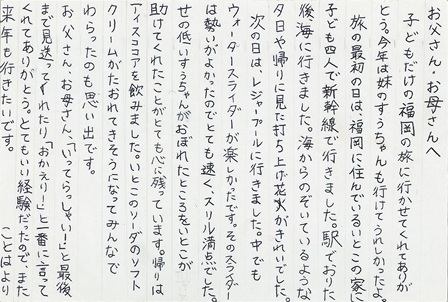 お父さん・お母さんへ
子どもだけの福岡の旅に行かせてくれてありが
とう。今年は妹のすうちゃんも行けてうれしかったよ。
旅の最初の日は、福岡に住んでいるいとこの家に
子ども四人で新幹線で行きました。駅でおりた
後、海に行きました。海からのぞいているような
夕日や帰りに見た打ち上げ花火がきれいでした。
次の日は、レジャープールに行きました。中でも
ウォータースライダーが楽しかったです。そのスライダー
は勢いがよかったのでとても速く、スリル満点でした。
せの低いすうちゃんがおぼれたところをいとこが
助けてくれたことがとても心に残っています。帰りは
アイスココアを飲みました。いとこのソーダのソフト
クリームがたおれてきそうになってみんなで
わらったのも思い出です。
お父さん、お母さん、「いってらっしゃい！」と最後
まで見送ってくれたり、「おかえり！」と一番に言って
くれてありがとう。とてもいい経験だったのでまた
来年も行きたいです。
ことはより